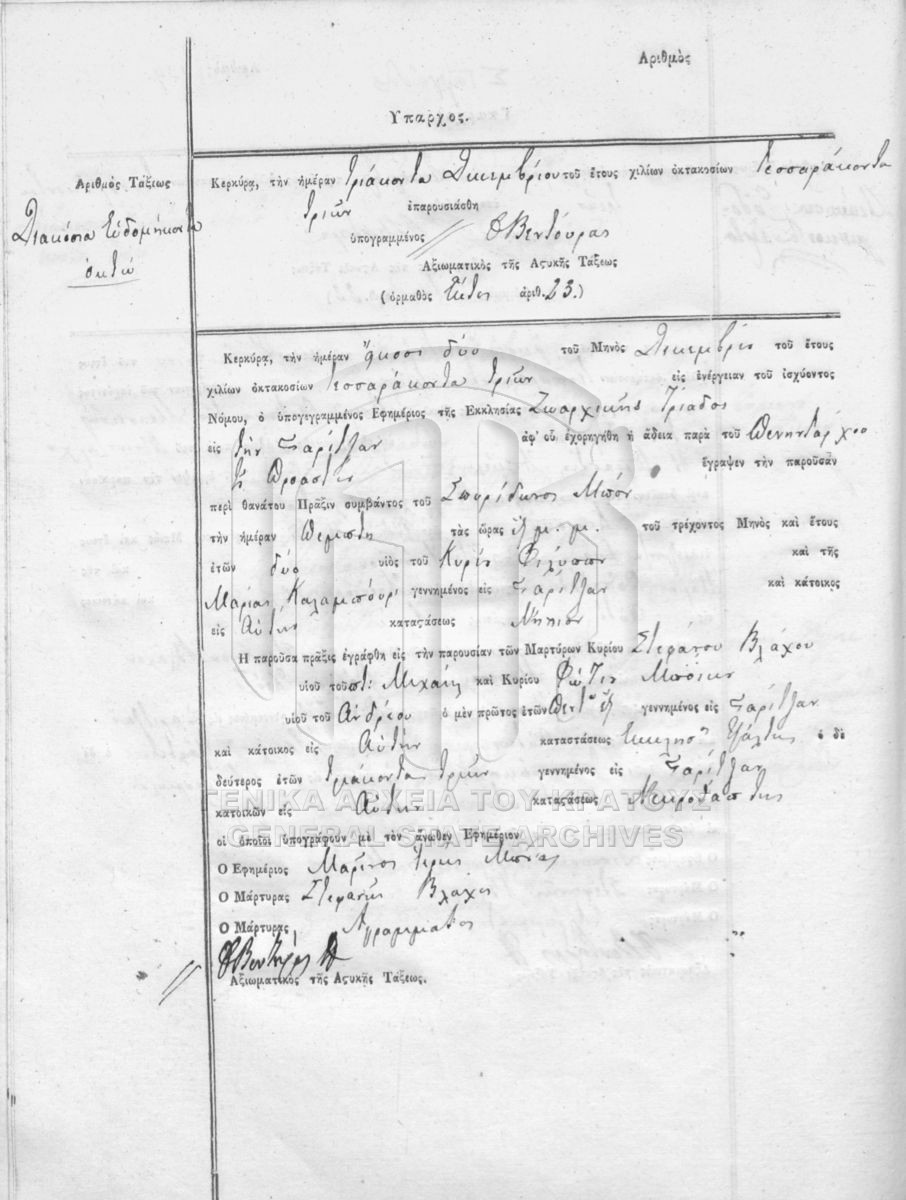 Αριθμὸς
Υπαρχος.
Αριθμὸς Τάξεως
Διακόσια ἑυδομήκοντα
ὀκτώ
Κερκύρα, τὴν ἡμέραν τριάκοντα Δεκεμβρίου τοῦ ἔτους χιλίων ὀκτακοσίων τεσσαράκοντα
τριῶν ἐπαρουσιάσθη
ὑπογραμμένος Βεντούρας
Αξιωματικὸς τῆς Αςυκῆς Τάξεως
(ὁρμαθὸς ἀριθ. 23.)
Κερκύρα, τὴν ἡμέραν ἤκοσι δύο τοῦ Μηνὸς Δεκεμβρίς τοῦ ἔτους
χιλίων ὀκτακοσίων τεσσαράκοντα τριῶν εἰς ἐνέργειαν τοῦ ἰσχύοντος
Νόμου, ὁ ὑπογεγραμμένος Εφημέριος τῆς Εκκλησίας Ζωαρχικῆς Τριάδος
εἰς τὴν Γαρίτζαν ἀφ' οὗ ἐχορηγήθη ἡ ἄδεια παρὰ τοῦ
ἔγραψεν τὴν παροῦσαν
περὶ θανάτου Πρᾶξιν συμβάντος τοῦ Σπυρίδωνος Μπόη
τὴν ἡμέραν Πέμπτη τὰς ὥρας ἓξ μ. μ. τοῦ τρέχοντος Μηνὸς καὶ ἔτους
ἐτῶν δύο υἱὸς τοῦ Κυρίς Φιλίππου καὶ τῆς
Μαρίας Καλαμπόυρ γεννημένος εἰς Γαρίτζαν καὶ κάτοικος
εἰς Αὐτὴν καταςάσεως Νήπιον
Η παροῦσα πρᾶξις ἐγράφθη εἰς τὴν παρουσίαν τῶν Μαρτύρων Κυρίου Στεφάνου Βλάχου
υἱοῦ τοῦ ποτὲ Μιχαὴλ καὶ Κυρίου Φώτις
υἱοῦ τοῦ Ἀνδρέου ὁ μὲν πρῶτος ἐτῶν γεννημένος εἰς Γαρίτζαν
καὶ κάτοικος εἰς Αὐτὴν καταστάσεως Ψάλτης ὁ δὲ
δεύτερος ἐτῶν τριάκοντα τριῶν γεννημένος εἰς Γαρίτζαν
κατοικῶν εἰς Αὐτὴν καταςάσεως Νεκροθάπτης
οἱ ὁποῖοι ὑπογράφουν μὲ τὸν ἄνωθεν Εφημέριον
Ο Εφημέριος Μαρίνος ἱερεὺς Μπόιας
Ο Μάρτυρας Στεφανὴς Βλάχος
Ο Μάρτυρας Ἀγράμματος
Βεντούρας
Αξιωματικὸς τῆς Αςυκῆς Τάξεως.
ΓΕΝΙΚΑ ΑΡΧΕΙΑ ΤΟΥ ΚΡΑΤΟΥΣ
GENERAL STATE ARCHIVES